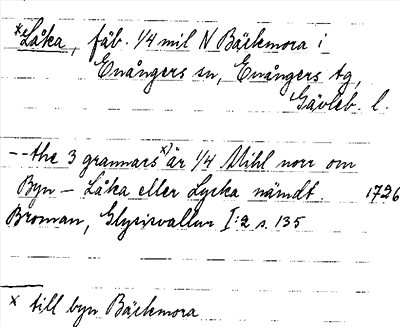 *Låka, fäb. 1/4 mil N Bäckmora i
Enångers sn, Enångers tg,
Gävleb. l.
-- the 3 grannars x) är 1/4 Mihl norr om
Byn - Låka eller Lycka nämdt. 1726
Broman, Glysisvallur I:2 s. 135
x till byn Bäckmora